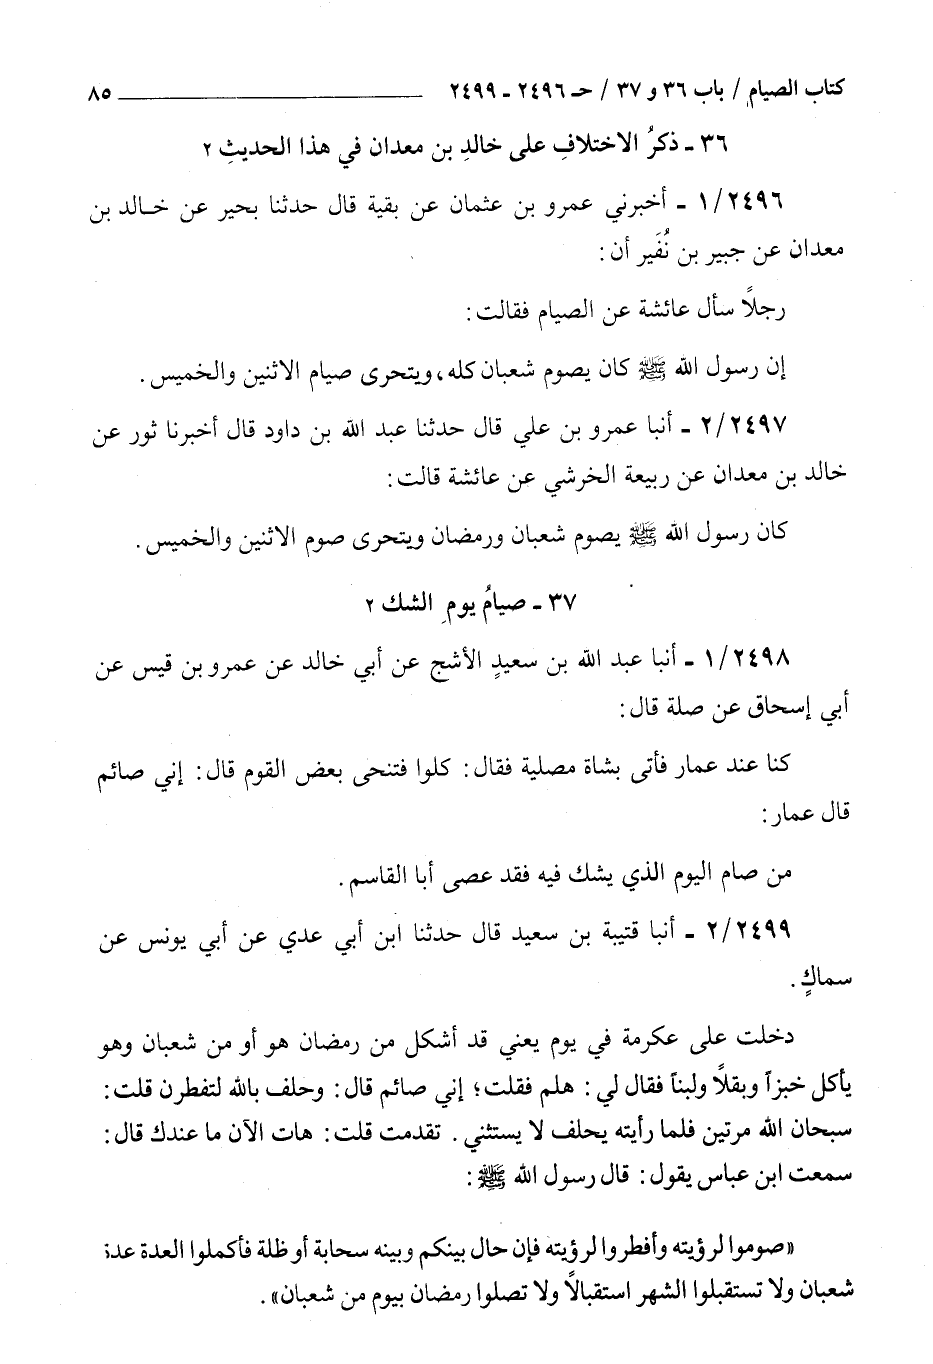 كتاب الصيام / باب ٣٦ و ٣٧ / حـ ٢٤٩٦ - ٢٤٩٩ ـــــــــــــــــــــــــ ٨٥
٣٦ - ذكرُ الاختلافِ على خالدِ بن معدان في هذا الحديثِ ٢
١/٢٤٩٦ - أخبرني عمرو بن عثمان عن بقية قال حدثنا بحير عن خالد بن
معدان عن جبير بن نُفَير أن:
رجلاً سأل عائشة عن الصيام فقالت:
إن رسول الله ﷺ كان يصوم شعبان كله، ويتحرى صيام الاثنين والخميس.
٢/٢٤٩٧ - أنبا عمرو بن علي قال حدثنا عبد الله بن داود قال أخبرنا ثور عن
خالد بن معدان عن ربيعة الخرشي عن عائشة قالت:
كان رسول الله ﷺ يصوم شعبان ورمضان ويتحرى صوم الاثنين والخميس.
٣٧ - صيامُ يومِ الشك ٢
١/٢٤٩٨ - أنبا عبد الله بن سعيدٍ الأشج عن أبي خالد عن عمرو بن قيس عن
أبي إسحاق عن صلة قال:
كنا عند عمار فأتى بشاة مصلية فقال: كلوا فتنحى بعض القوم قال: إني صائم
قال عمار:
من صام اليوم الذي يشك فيه فقد عصى أبا القاسم.
٢/٢٤٩٩ - أنبا قتيبة بن سعيد قال حدثنا ابن أبي عدي عن أبي يونس عن
سماكٍ.
دخلت على عكرمة في يوم يعني قد أشكل من رمضان هو أو من شعبان وهو
يأكل خبزاً وبقلاً ولبناً فقال لي: هلم فقلت؛ إني صائم قال: وحلف بالله لتفطرن قلت:
سبحان الله مرتين فلما رأيته يحلف لا يستثني. تقدمت قلت: هات الآن ما عندك قال:
سمعت ابن عباس يقول: قال رسول الله ﷺ:
«صوموا لرؤيته وأفطروا لرؤيته فإن حال بينكم وبينه سحابة أو ظلة فأكملوا العدة عدة
شعبان ولا تستقبلوا الشهر استقبالاً ولا تصلوا رمضان بيوم من شعبان».